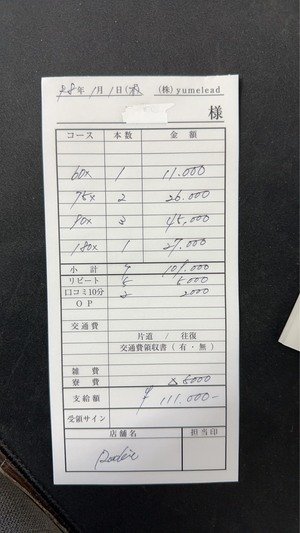 R8年 1月 1日(木) (株)yumelead
様
コース 本数 金額
60× 1 11.000
75× 2 26.000
90× 3 45,000
180× 1 27.000
小計 7 109,000
リピート 5 5000
口コミ10分 2 2000
OP
交通費
片道 / 往復
交通費領収書(有・無)
雑費
寮費 △5000
支給額 ¥111.000-
受領サイン
店舗名 担当印